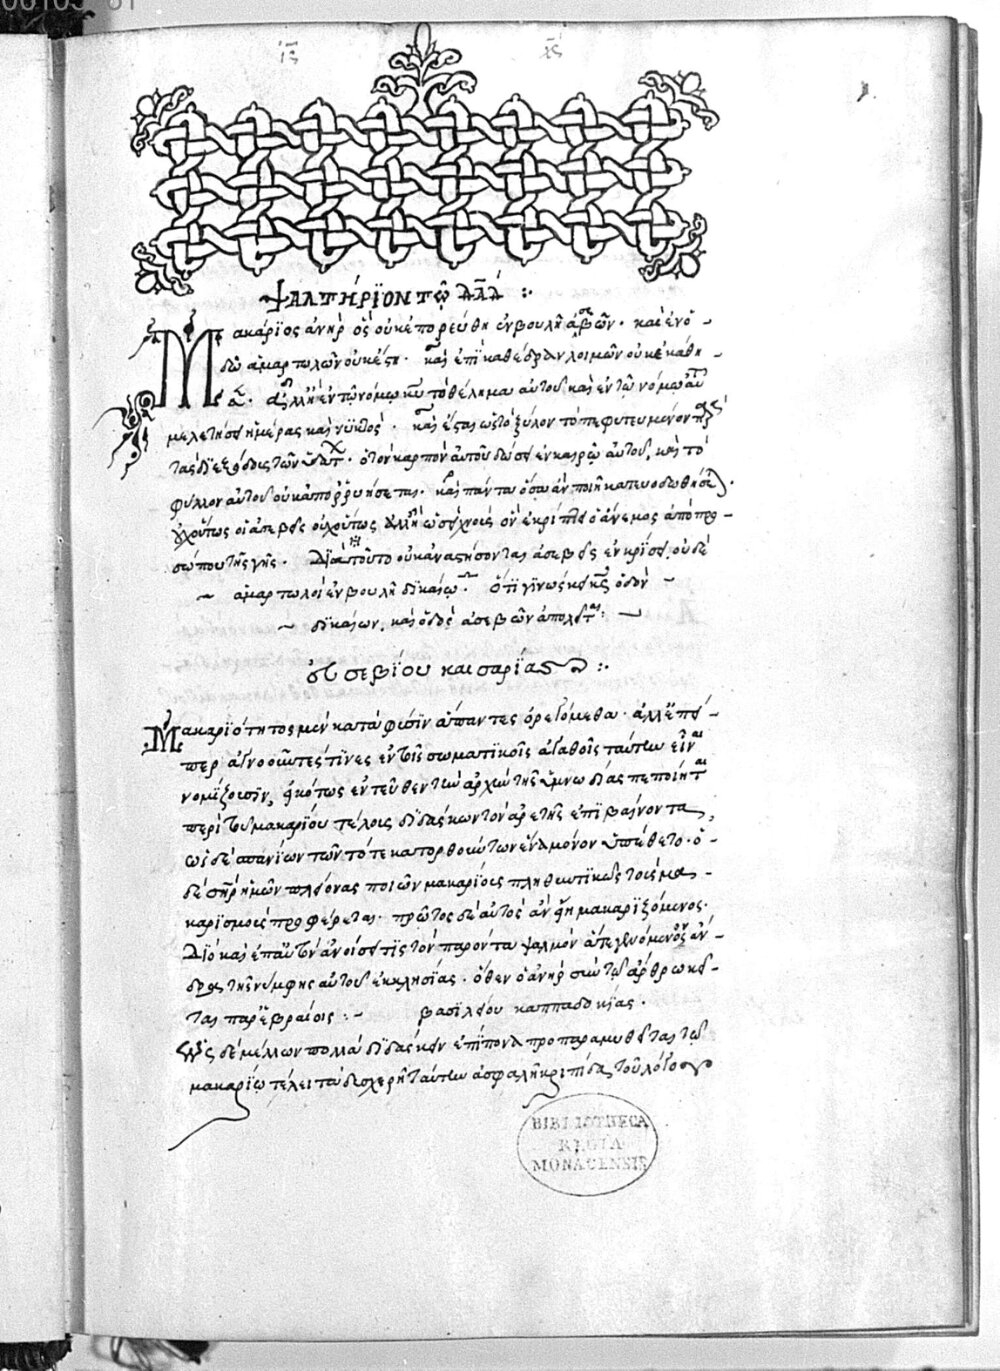 ις χς
ψαλτήριον τῷ δᾱδ :·
Μακάριος ἀνὴρ ὃς οὐκ ἐπορεύθη ἐν βουλῇ ἀσεβῶν · καὶ ἐν ὁ–
δῷ ἁμαρτωλῶν οὐκ ἔστη · καὶ ἐπὶ καθέδραν λοιμῶν οὐκ ἐκάθι–
σεν · ἀλλ' ἢ ἐν τῷ νόμῳ κυ τὸ θέλημα αὐτοῦ καὶ ἐν τῷ νόμῳ αὐτοῦ
μελετήσει ἡμέρας καὶ νυκτός · καὶ ἔσται ὡς τὸ ξύλον τὸ πεφυτευμένον παρὰ
τὰς διεξόδους τῶν ὑδάτ · ὃ τὸν καρπὸν αὐτοῦ δώσει ἐν καιρῷ αὐτοῦ, καὶ τὸ
φύλλον αὐτοῦ οὐκ ἀπορρυήσεται · καὶ πάντα ὅσα ἂν ποιῇ κατευοδωθήσεται ·
οὐχ οὕτως οἱ ἀσεβεῖς οὐχ οὕτως ἀλλ' ἢ ὡσεὶ χνοῦς ὃν ἐκρίπτει ὁ ἄνεμος ἀπὸ προ–
σώπου τῆς γῆς · Διὰ τοῦτο οὐκ ἀναστήσονται ἀσεβεῖς ἐν κρίσει, οὐδὲ
– ἁμαρτωλοὶ ἐν βουλῇ δικαίων · ὅτι γινώσκει κς ὁδὸν –
– δικαίων, καὶ ὁδὸς ἀσεβῶν ἀπολεῖται : –
εὐσεβίου καισαρίας :·
Μακαριότητος μὲν κατὰ φύσιν ἅπαντες ὀρεγόμεθα · ἀλλ' ἐπεί–
περ ἀγνοοῦντές τινες ἐν τοῖς σωματικοῖς ἀγαθοῖς ταύτην εἶναι
νομίζουσιν, εἰκότως ἐντεῦθεν τὴν ἀρχὴν τῆς ὑμνωδίας πεποίηται
περὶ τοῦ μακαρίου τέλους διδάσκων τὸν ἀρετῆς ἐπιβαίνοντα,
ὡς δὲ σπανίων τῶν τότε κατορθούντων ἕνα μόνον ὑπέθετο · ὁ
δὲ σηρ ἡμῶν πλείονας ποιῶν μακαρίους πληθυντικῶς τοὺς μα–
καρισμοὺς προφέρεται · πρῶτος δὲ αὐτὸς ἂν εἴη μακαριζόμενος ·
Διὸ καὶ ἐπ' αὐτὸν ἀνοίσει τις τὸν παρόντα ψαλμὸν ἅτε γενόμενον ἄν–
δρα τῆς νύμφης αὐτοῦ ἐκκλησίας · ὅθεν ὁ ἀνὴρ σὺν τῷ ἄρθρῳ κεῖ–
ται παρ' ἑβραίοις : – βασιλείου καππαδοκίας ·
Ὡς δὲ μέλλων πολλὰ διδάσκειν ἐπίπονα προπαραμυθεῖται τῷ
μακαρίῳ τέλει τὰ δυσχερῆ ταύτην ἀσφαλῆ κριπίδα τοῦ λόγου
BIBLIOTHECA
REGIA
MONACENSIS